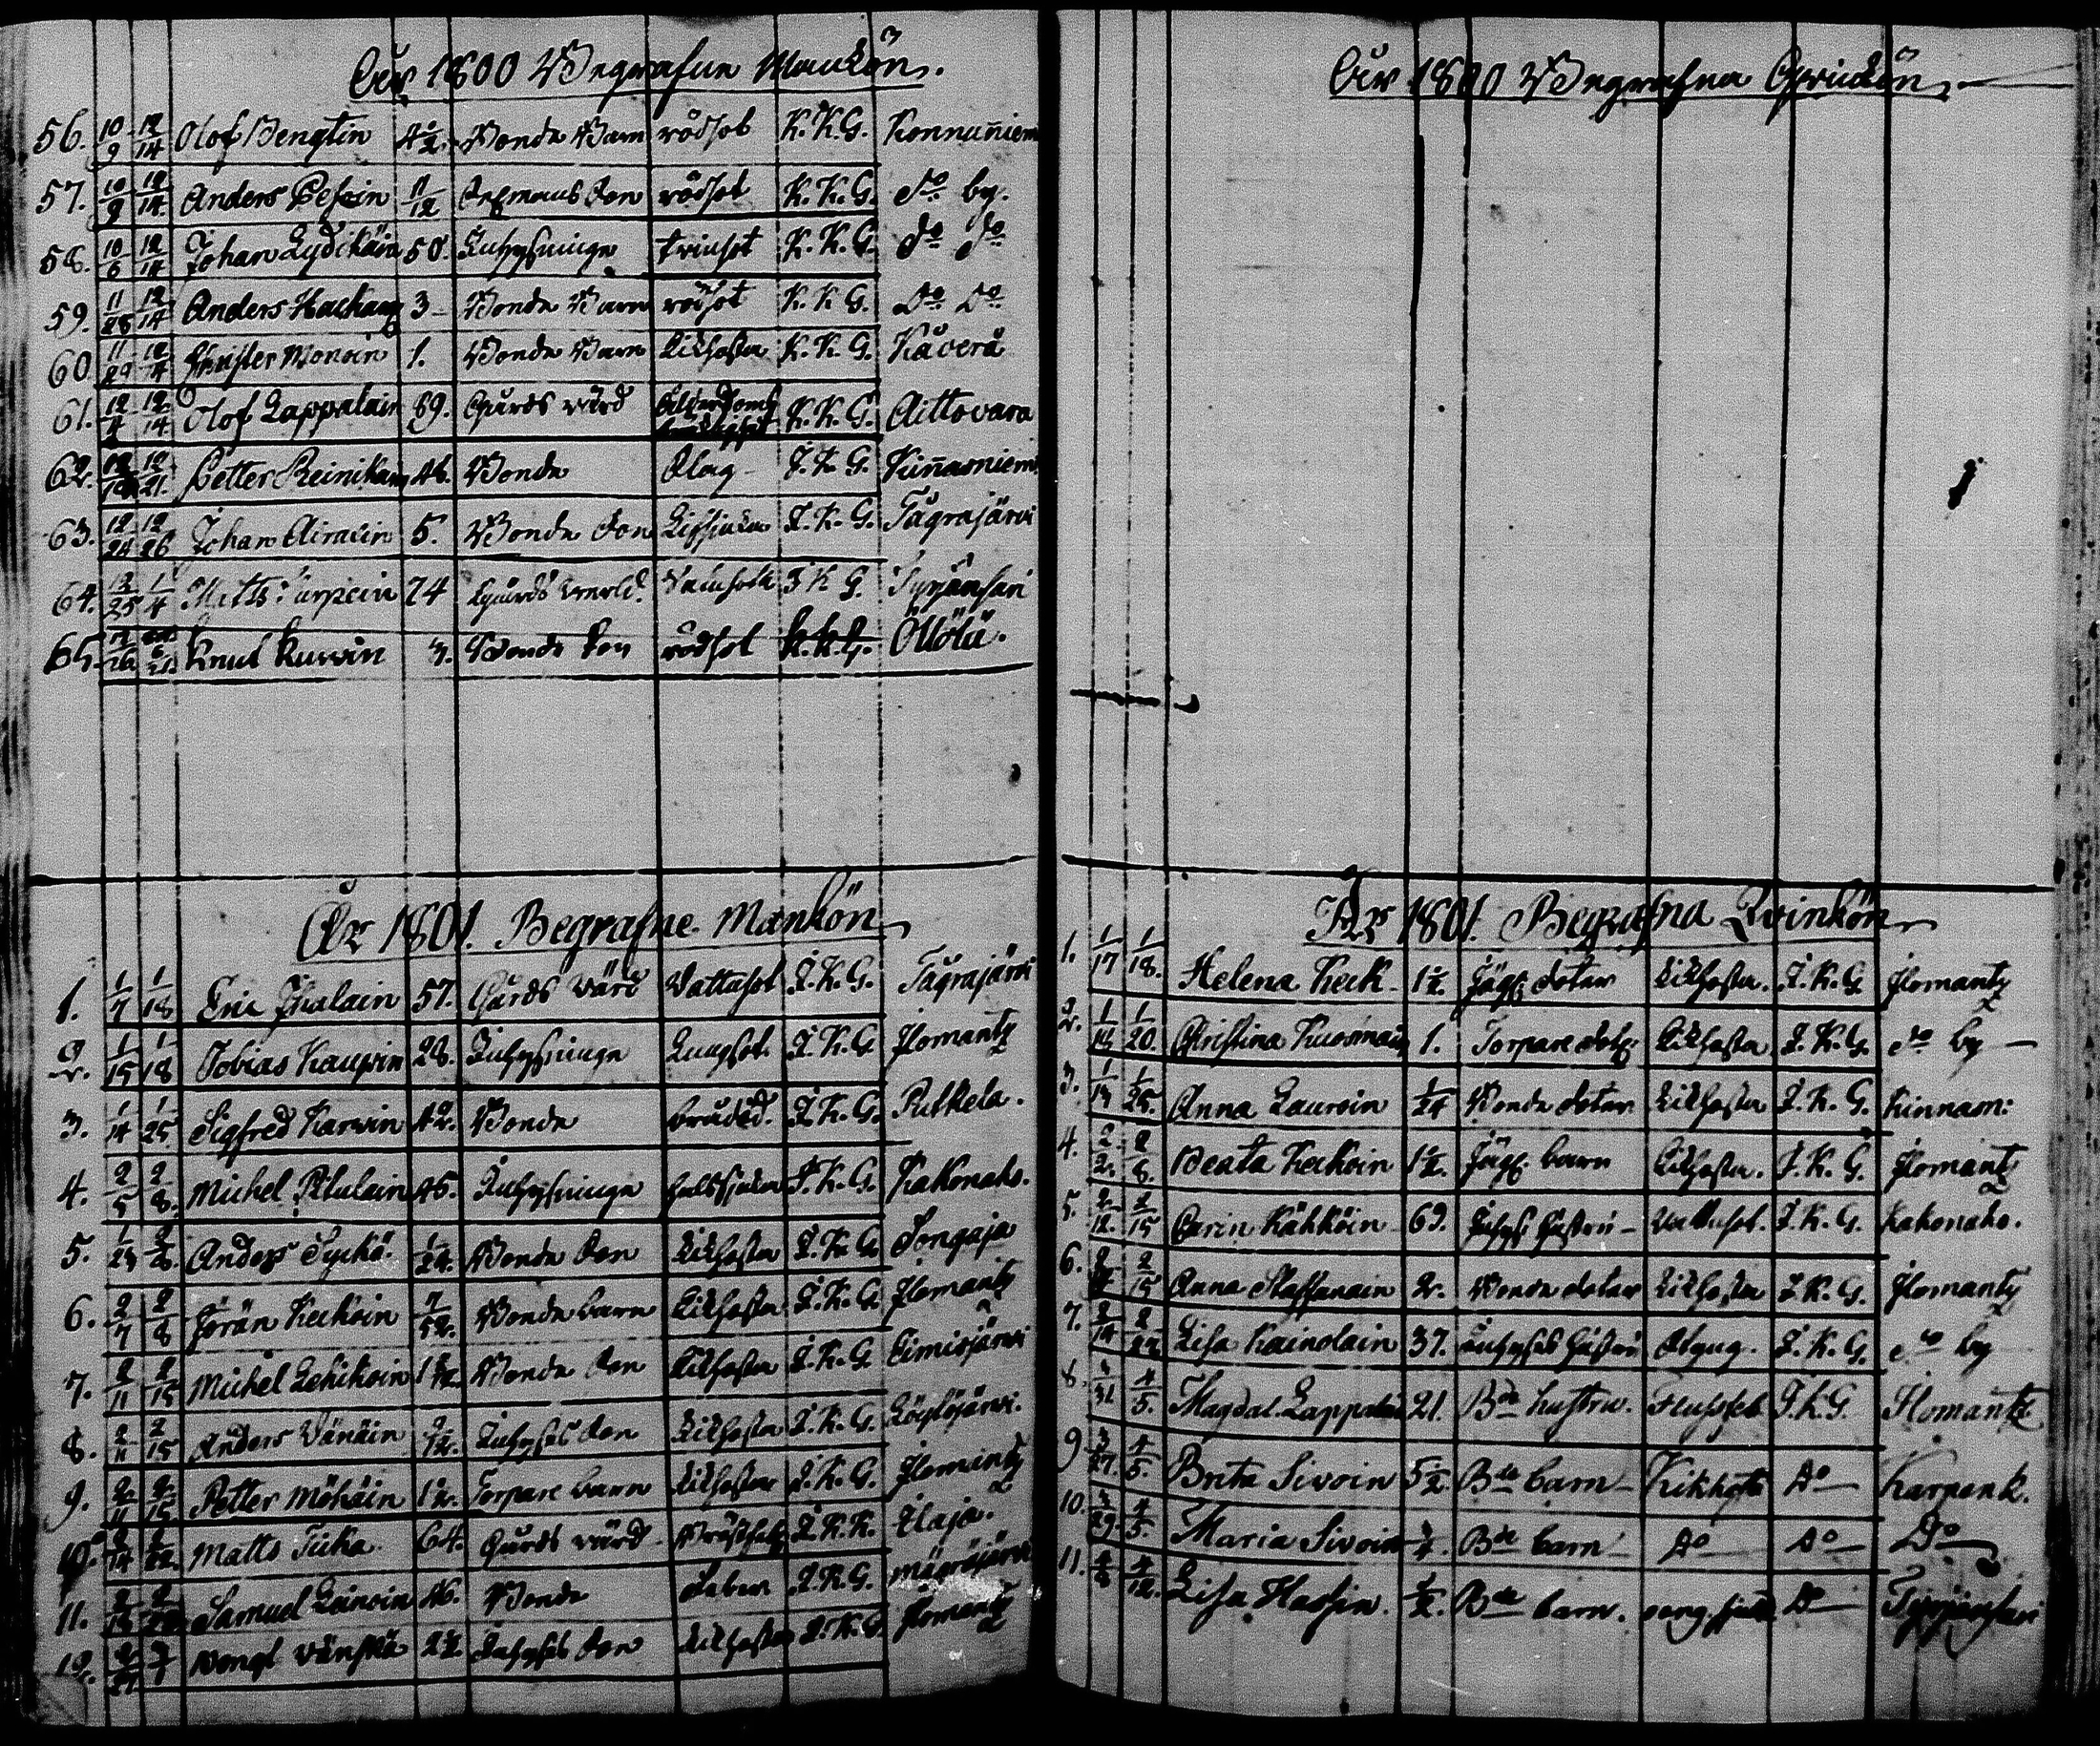 År 1800 Begrafne Mankön.
56. 10/9 12/14 Olof Bengtin 4 1/2. Bonde Barn rödsot K. K. G. Konnuñiem
57. 10/9 12/14. Anders Pesoin 11/12 Son rödsot K. K. G. do by.
58. 10/6 12/14 Johan Lydikäin 50. Inhysinge K. K. G. do do
59. 11/28 12/14 Anders 3 Bonde Barn rödsot K. K G. Do Do
60 11/29 12/14 Christer Monoin 1. Bonde Barn Kikhosta K. K. G. Käverä
61. 12/4 12/14 Olof Lappalain 89. Gårds värd Ålderdoms K. K. G. Aittovara
62. 12/21. Petter Reinikain 46. Bonde Slag J. K. G. Kiñasniemi
63. 12/24 12/26 Johan Airaxin 5. Bonde Son J. K. G. Tägrajärvi
64. 12/25 1/4 Matts 74 Gårds värd J K G. Syrjänsari
65. Knut Kurvin 3. Bonde Son rödsot K. K. G. Öllölä.
År 1801. Begrafne Mankön
1. 1/7 1/18 Eric Ihalain 57. Gårds värd Vattusot J. K. G. Tägrajärvi
2. 1/15 1/18 Tobias Kaupin 28. Inhysinge Lungsot. J. K. G Ilomantz
3. 1/14 1/25 Sigfred Karwin 42. Bonde J. K. G. Putkela.
4. 2/5 2/8. Michel Pitulain 45. Inhysinge halssjuka J. K. G. Kakonaho.
5. 1/23 2/8. Anders Syckö. 1/24. Bonde Son Kikhosta J. K. G. Songaja
6. 2/7 2/8 Jörän Keckoin 7/52. Bonde barn Kikhosta J. K. G. Ilomantz
7. 2/11 2/15 Michel Lehikoin 1 1/2. Bonde Son Kikhosta J. K. G Eimisjärvi
8. 2/11 2/15 Anders Vänäin Inhyses Son Kikhosta J. K. G. Löylöjärvi.
9. 2/11 2/15 Petter Möhöin 1 1/2. Torpare barn Kikhosta J. K. G. Ilomantz
10. 2/14 2/22. Matts Tiika. 64. Gårds värd J. K. K. Ilaja.
11. Samuel Leinoin 46. Bonde Feber J. K. G.
12. 2/27 Bengt Vänskä 2 1/2 Inhyses Son Kikhosta J. K. G Ilomantz
År 1800 Begrafna Qvinkön
År 1801. Begrafna Qvinkön
1. 1/17 1/18. Helena Keck. 1 1/2. dotter Kikhosta. J. K. G. Ilomantz
2. 1/20. Christina Kuosmain 1. Torpare dotter Kikhosta J. K. G. do by
3. 1/25. Anna Lauroin 1/24 Bonde dotter Kikhosta J. K. G. Kinnasn:
4. 2/2. 2/8. Beata Keckoin 1 1/2. barn Kikhosta. J. K. G. Ilomantz
5. 2/12. 2/15 Carin Kähköin 69. Inhyses Hustru Vattusot. J. K. G. Kakonaho.
6. 2/15 Anna Staffanain 2. Bonde dotter Kikhosta J. K. G. Ilomantz
7. 2/14 2/22 Lisa Kainolain 37. Inhyses Hustru J. K. G. do by
8. 3/31 4/5. Magdal. Lappalain 21. Bde hustru. J. K. G. Ilomantz
9 3/27. 4/5. Brita Sivoin 5 1/2 Bde barn Kikhosta Do Karpenk.
10. 3/29. 4/5. Maria Sivoin Bde barn Do Do Do
11. 4/8 4/12. Lisa Hassin. 1/2. Bde barn. Do Syrjänsari